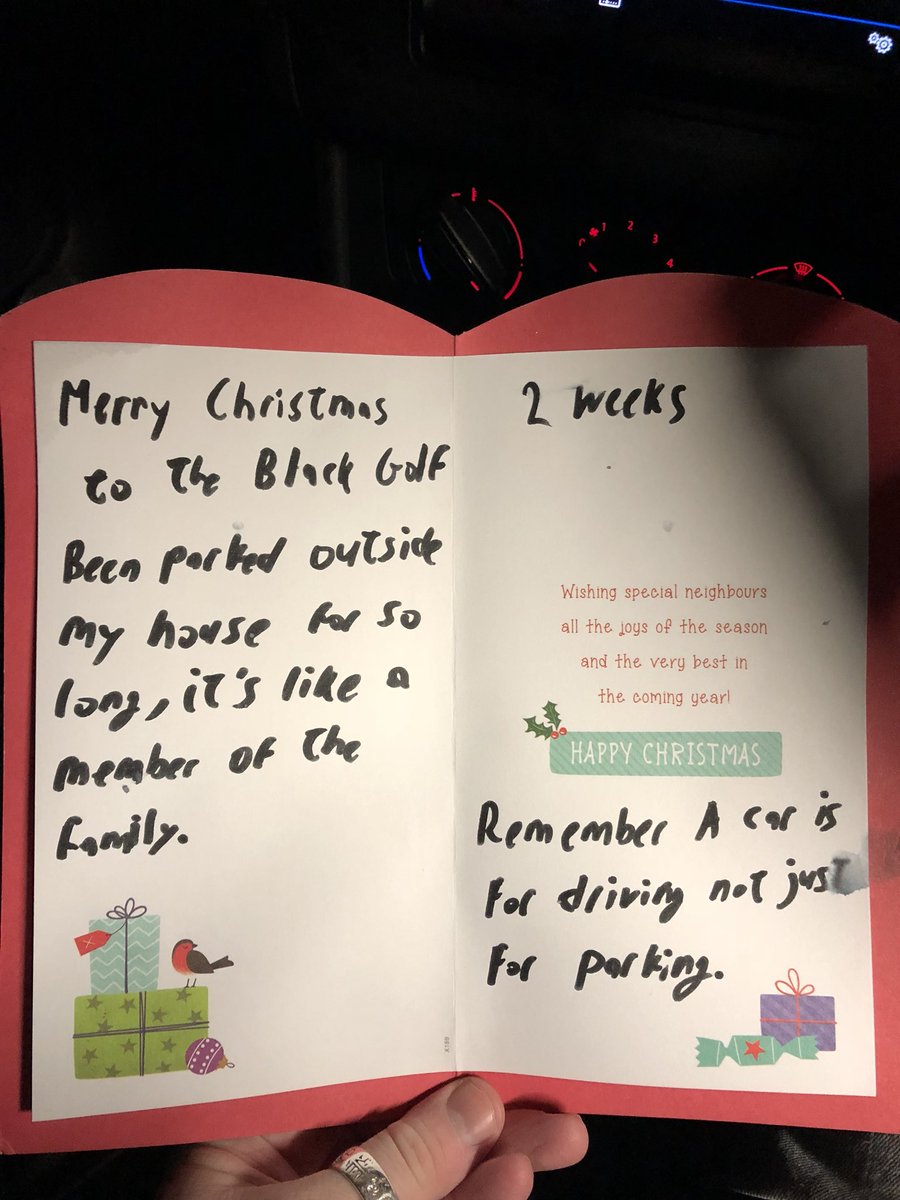 Merry Christmas
to the Black Golf
Been parked outside
my house for so
long, it's like a
member of the
family.
2 weeks
Wishing special neighbours
all the joys of the season
and the very best in
the coming year!
HAPPY CHRISTMAS
Remember A car is
for driving not just
for parking.
X189
1 2 3 4